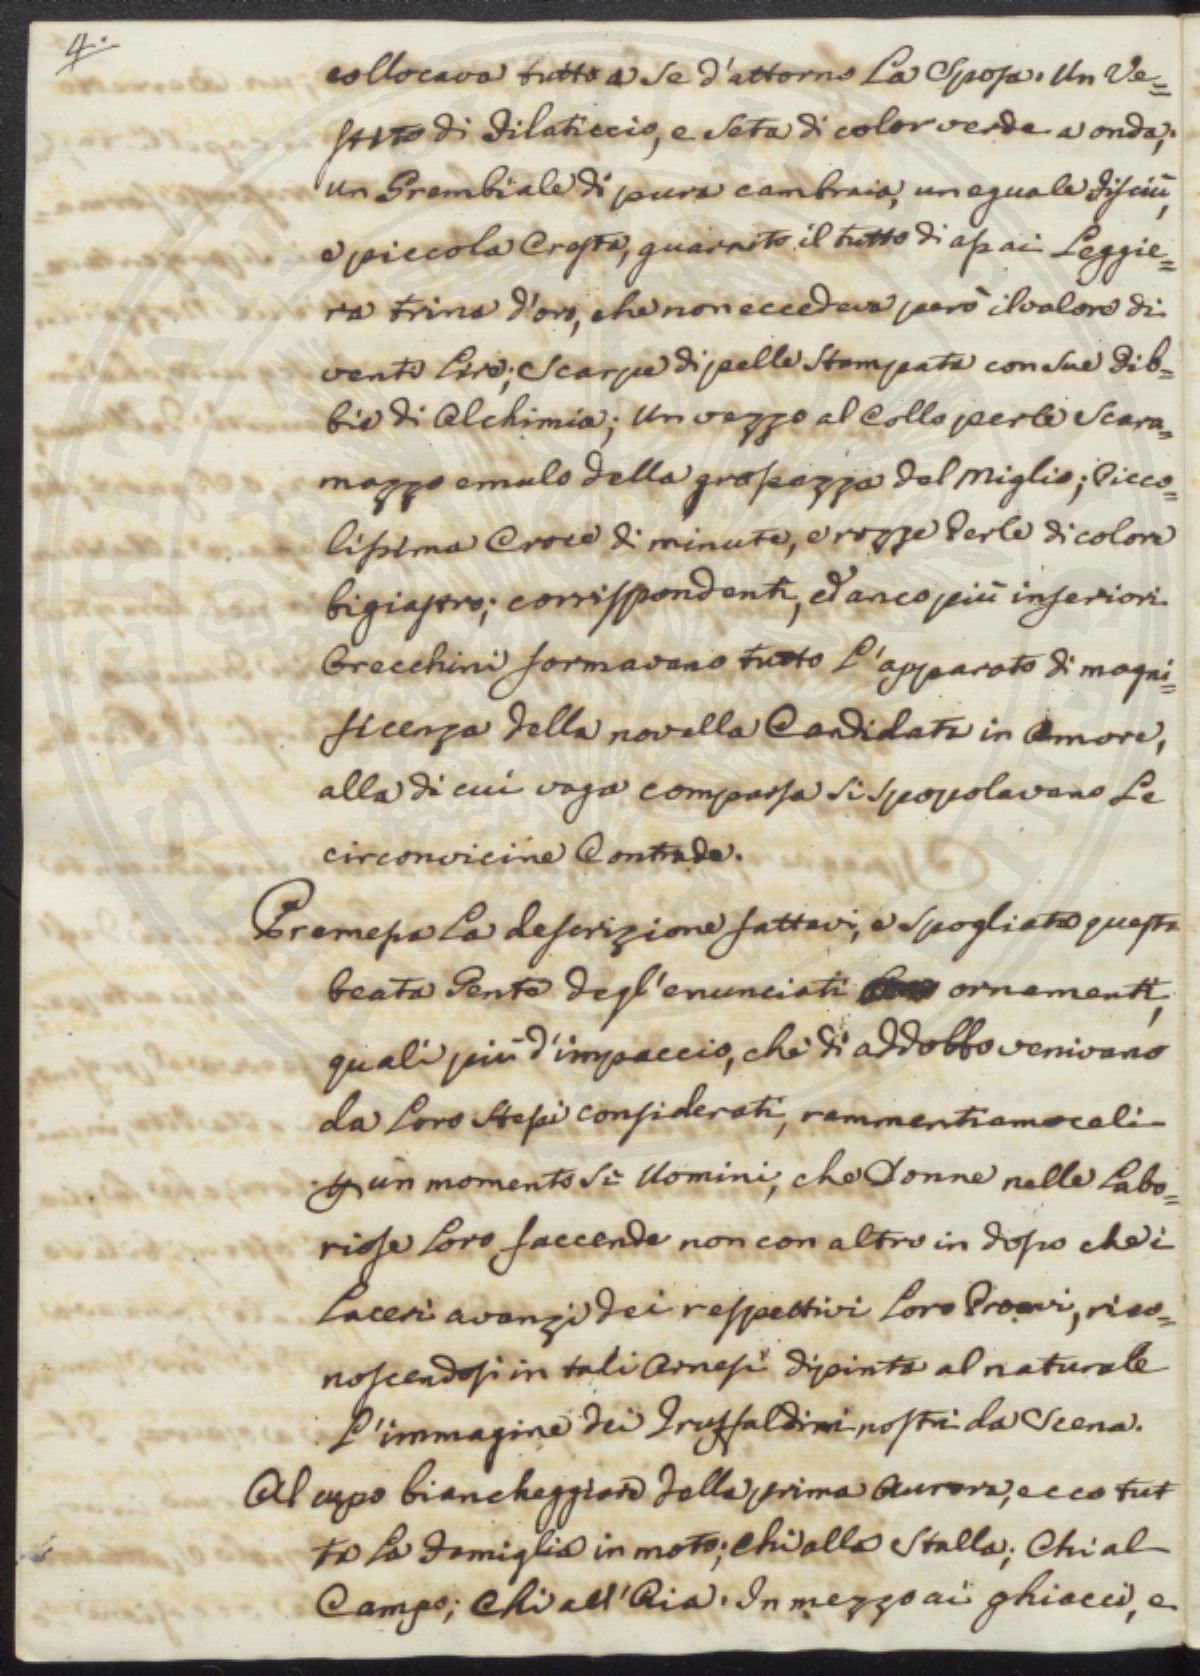 4.
collocava tutto a se d'attorno La Sposa. Un Ve=
stito di Filaticcio, e Seta di color verde a onda;
un Grembiale di pura cambraia, un eguale Fisciù,
e piccola Cresta, guarnito il tutto di assai Leggie=
ra trina d'oro, che non eccedeva però il valore di
venti Lire; Scarpe di pelle Stampata con sue Fib=
bie di Alchimia; Un vezzo al Collo perle Scara=
mazze emulo della grossezza del Miglio; Picco=
lissima Croce di minute, e rozze Perle di colore
bigiastro; corrisspondenti, ed anco più inferiori
Orecchini formavano tutto L'apparato di magni=
ficenza della novella Candidata in Amore,
alla di cui vaga comparsa si spopolavano Le
circonvicine Contrade.
Premessa La descrizione fattavi, e spogliata questa
beata Gente degl'enunciati ornamenti,
quali più d'impaccio, che di addobbo venivano
da Loro Stessi considerati, rammentiamoceli
un momento sì Uomini, che Donne nelle Labo=
riose Loro faccende non con altro in dosso che i
Laceri avanzi dei respettivi Loro Proavi, rico=
noscendosi in tali Arnesi dipinta al naturale
L'immagine dei Truffaldini nostri da Scena.
Al cupo biancheggiare della prima Aurora, ecco tut
ta La Famiglia in moto; Chi alla Stalla; Chi al
Campo; Chi all'Aia. In mezzo ai ghiacci, e